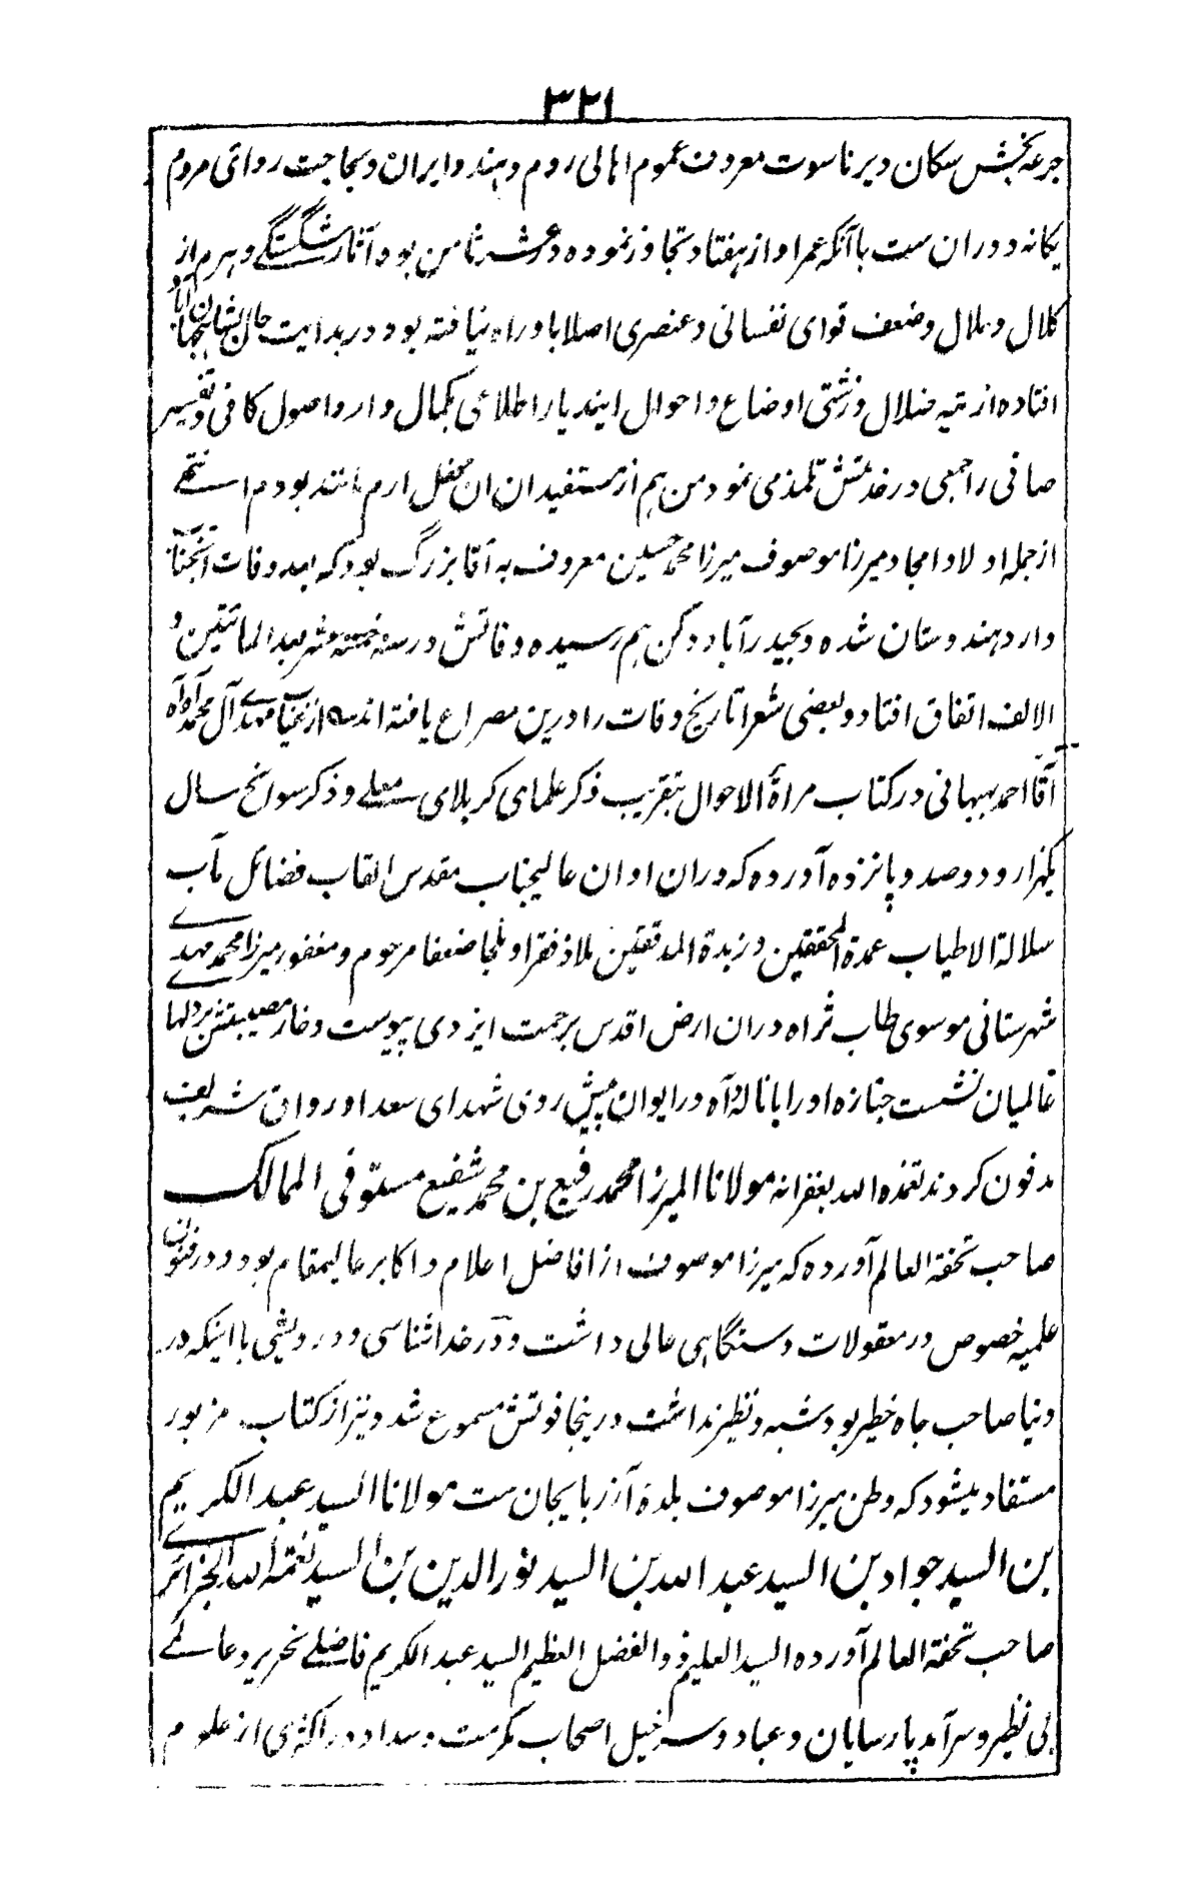 ۳۲۱
جرعه بخش سکان دیر ناسوت معروف عموم اهالی روم و هند و ایران و بحاجت روائی مردم
یکانه دوران ست با آنکه عمر او از هفتاد تجاوز نموده و عشر ثامن بود آثار شگستگے و هرم از
کلال و ملال و ضعف قوای نفسانی و عنصری اصلا باو راه نیافته بود در بدایت حال بشاهجهان آباد
افتاده از تیه ضلال و زشتی اوضاع و احوال ایندیار اطلاعی بکمال دارد اصول کافی و تفسیر
صافی را جمعی در خدمتش تلمذ می نمود من هم از مستفیدان ان محفل ارم مانند بودم انتهے
از جمله اولاد امجاد میرزا موصوف میرزا محمد حسین معروف به آقا بزرگ بود که بعد وفات آنجناب
وارد هندوستان شده و بحیدرآباد دکن هم رسیده وفاتش در سنه خمسته عشر بعد المائتین و
الالف اتفاق افتاد و بعضی شعرا تاریخ وفات را درین مصراع یافته اند سه از غیاب مهدے آل محمد آه آه
آقا احمد بهبهانی در کتاب مراة الاحوال بتقریب ذکر علمای کربلای معلے و ذکر سوانح سال
یکهزار و دوصد و پانزده آورده که دران اوان عالیجناب مقدس القاب فضائل مآب
سلالة الاطیاب عمدة المحققین و زبدة المدققین ملاذ فقرا و ملجا ضعفا مرحوم و مغفور میرزا محمد مهدے
شهرستانی موسوی طاب ثراه دران ارض اقدس برحمت ایزدی پیوست و خار مصیبتش بر دلها
عالمیان نشست جنازه او را با ناله و آه در ایوان پیش روی شهدای سعدا و رواق شریف
مدفون کردند تغمده الله بغفرانه مولانا المیرزا محمد رفیع بن محمد شفیع مستوفی الممالک
صاحب تحفة العالم آورده که میرزا موصوف از افاضل اعلام و اکابر عالیمقام بود و در فنون
علمیه خصوص در معقولات دستگاهی عالی داشت و در خداشناسی و درویشی با اینکه در
دنیا صاحب جاه خطیر بود شبه و نظیر نداشت درینجا فوتش مسموع شد و نیز از کتاب مزبور
مستفاد میشود که وطن میرزا موصوف بلدهٔ آذربایجان ست مولانا السید عبد الکریم
بن السید جواد بن السید عبد الله بن السید نور الدین بن السید نعمة الله الجزائرے
صاحب تحفة العالم آورده السید العلیم و الفضل العظیم السید عبد الکریم فاضلے نحریر و عالمے
بی نظیر و سرآمد پارسایان و عباد و سرخیل اصحاب مکرمت و سداد در اکثری از علوم